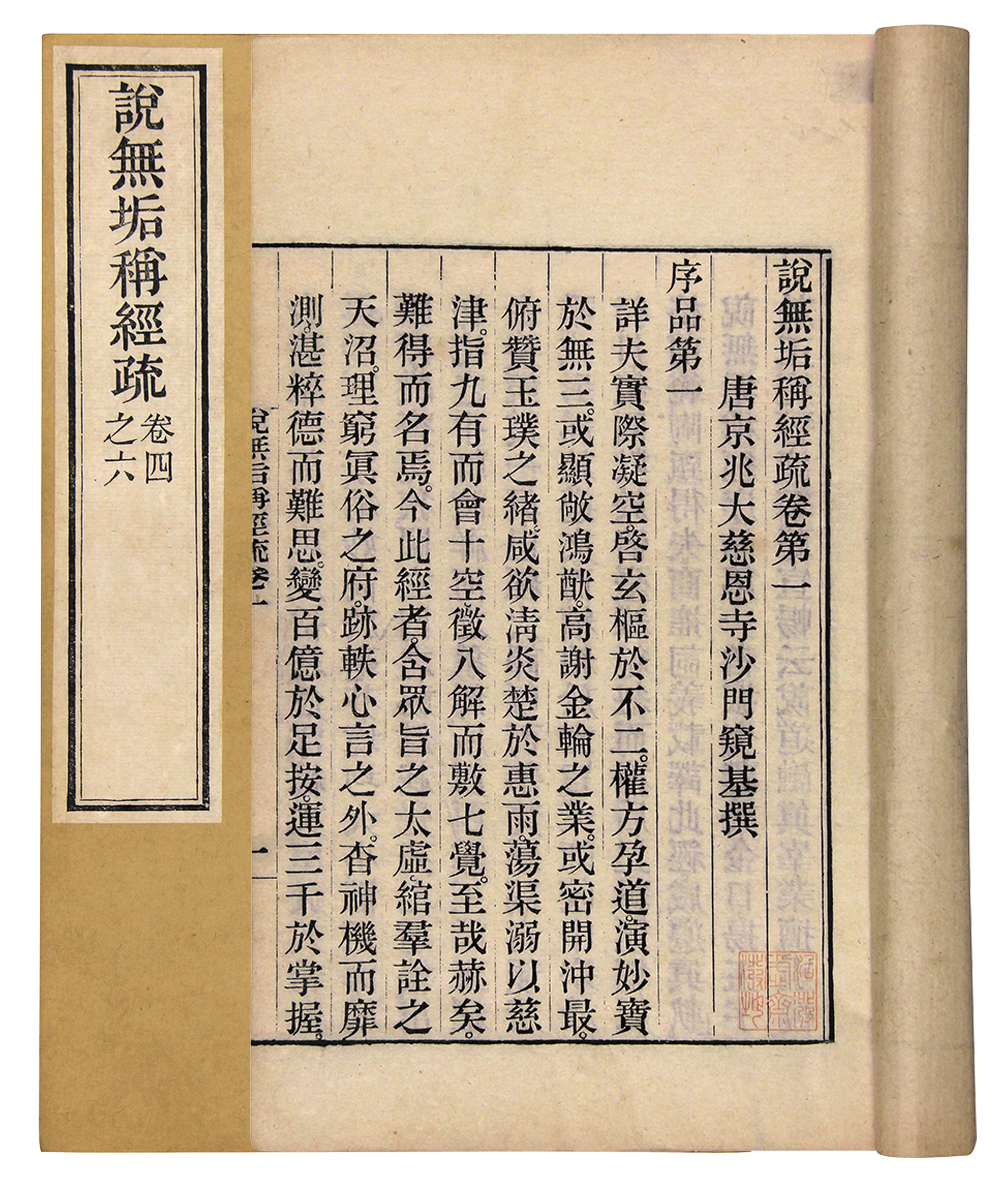 說無垢稱經疏卷第一
唐京兆大慈恩寺沙門窺基撰
序品第一
詳夫實際凝空。啓玄樞於不二。權方孕道。演妙寶
於無三。或顯敞鴻猷。高謝金輪之業。或密開沖最。
俯贊玉璞之緒。咸欲淸炎楚於惠雨。蕩渠溺以慈
津。指九有而會十空。徵八解而敷七覺。至哉赫矣。
難得而名焉。今此經者。含眾旨之太虛。綰羣詮之
天沼。理窮冥俗之府。跡軼心言之外。杳神機而靡
測。湛粹德而難思。變百億於足按。運三千於掌握。
說無垢稱經疏卷一
一
說無垢稱經疏
卷四
之六